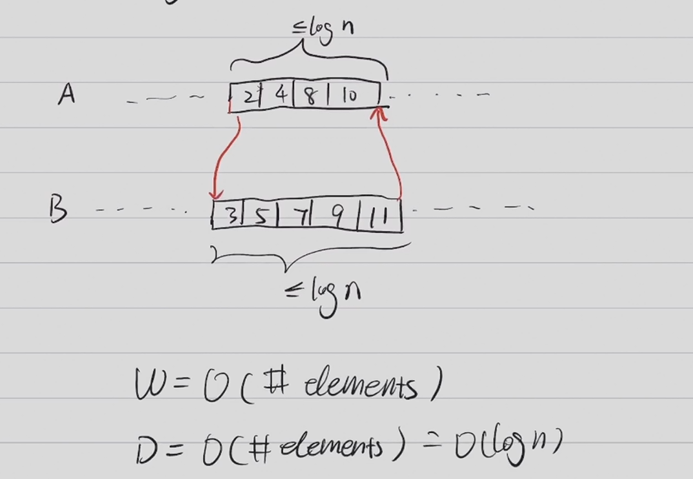 ≤log n
A 2 4 8 10
B 3 5 7 9 11
≤log n
W = O(# elements)
D = O(# elements) = O(log n)